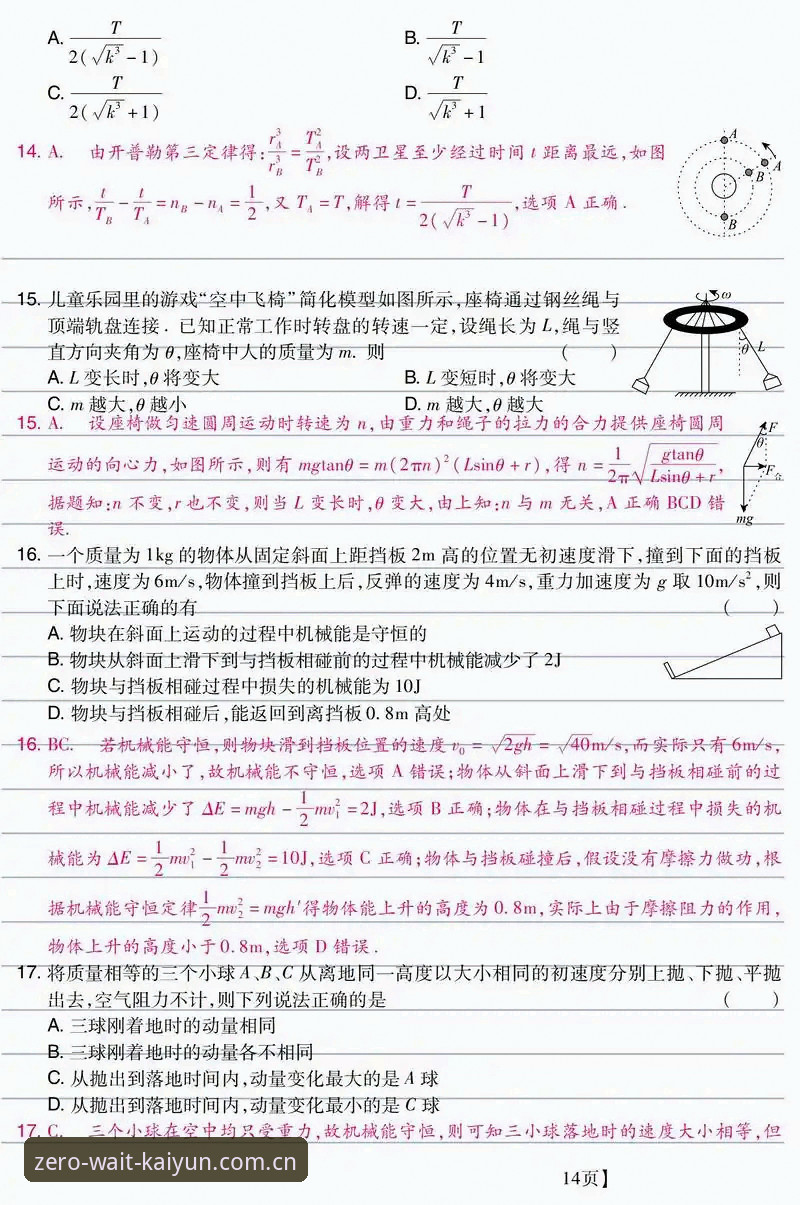 A. T/(2(√k³-1)) B. T/(√k³-1)
C. T/(2(√k³+1)) D. T/(√k³+1)
14. A. 由开普勒第三定律得:r_A³/r_B³=T_A²/T_B²,设两卫星至少经过时间 t 距离最远,如图
所示,t/T_B-t/T_A=n_B-n_A=1/2,又 T_A=T,解得 t=T/(2(√k³-1)),选项 A 正确.
A
A
B
B
15. 儿童乐园里的游戏“空中飞椅”简化模型如图所示,座椅通过钢丝绳与
顶端轨盘连接. 已知正常工作时转盘的转速一定,设绳长为 L,绳与竖
直方向夹角为 θ,座椅中人的质量为 m. 则 ( )
A. L 变长时,θ 将变大 B. L 变短时,θ 将变大
C. m 越大,θ 越小 D. m 越大,θ 越大
ω
θ L
15. A. 设座椅做匀速圆周运动时转速为 n,由重力和绳子的拉力的合力提供座椅圆周
运动的向心力,如图所示,则有 mgtanθ=m(2πn)²(Lsinθ+r),得 n=1/2π√(gtanθ/(Lsinθ+r)),
据题知:n 不变,r 也不变,则当 L 变长时,θ 变大,由上知:n 与 m 无关,A 正确 BCD 错
误.
F
θ
F合
mg
16. 一个质量为 1kg 的物体从固定斜面上距挡板 2m 高的位置无初速度滑下,撞到下面的挡板
上时,速度为 6m/s,物体撞到挡板上后,反弹的速度为 4m/s,重力加速度为 g 取 10m/s²,则
下面说法正确的有 ( )
A. 物块在斜面上运动的过程中机械能是守恒的
B. 物块从斜面上滑下到与挡板相碰前的过程中机械能减少了 2J
C. 物块与挡板相碰过程中损失的机械能为 10J
D. 物块与挡板相碰后,能返回到离挡板 0.8m 高处
16. BC. 若机械能守恒,则物块滑到挡板位置的速度 v₀=√2gh=√40m/s,而实际只有 6m/s,
所以机械能减小了,故机械能不守恒,选项 A 错误;物体从斜面上滑下到与挡板相碰前的过
程中机械能减少了 ΔE=mgh-1/2mv₁²=2J,选项 B 正确;物体在与挡板相碰过程中损失的机
械能为 ΔE=1/2mv₁²-1/2mv₂²=10J,选项 C 正确;物体与挡板碰撞后,假设没有摩擦力做功,根
据机械能守恒定律1/2mv₂²=mgh′得物体能上升的高度为 0.8m,实际上由于摩擦阻力的作用,
物体上升的高度小于 0.8m,选项 D 错误.
17. 将质量相等的三个小球 A、B、C 从离地同一高度以大小相同的初速度分别上抛、下抛、平抛
出去,空气阻力不计,则下列说法正确的是 ( )
A. 三球刚着地时的动量相同
B. 三球刚着地时的动量各不相同
C. 从抛出到落地时间内,动量变化最大的是 A 球
D. 从抛出到落地时间内,动量变化最小的是 C 球
17. C. 三个小球在空中均只受重力,故机械能守恒,则可知三小球落地时的速度大小相等,但
zero-wait-kaiyun.com.cn
14页】